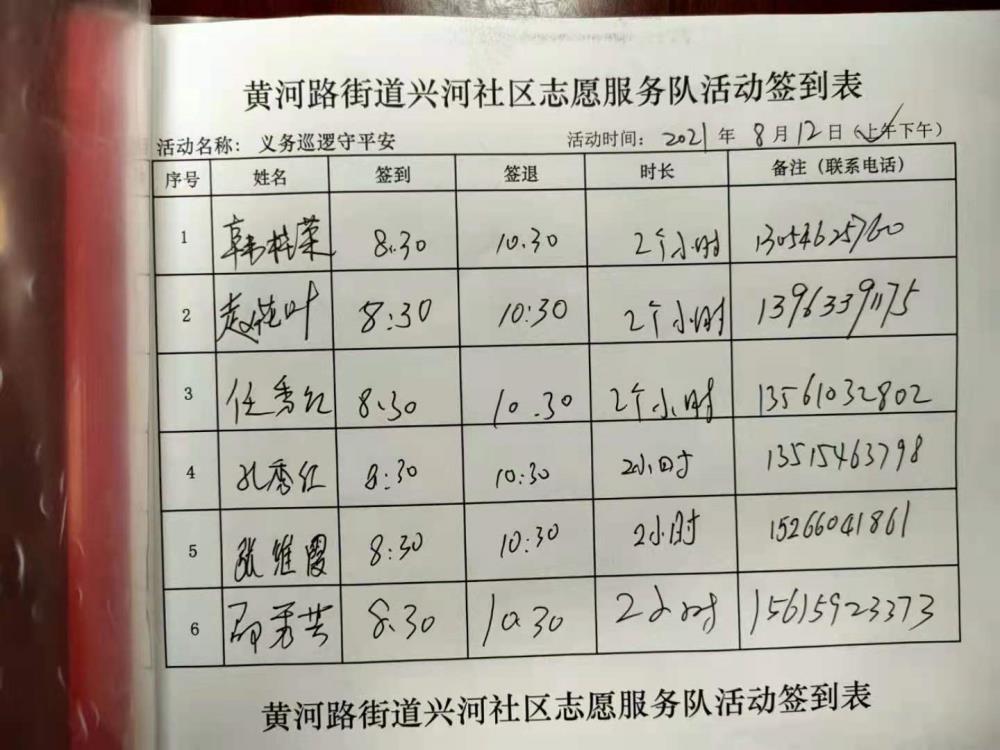 黄河路街道兴河社区志愿服务队活动签到表
活动名称：义务巡逻守平安 活动时间：2021年8月12日（上午下午）
序号 姓名 签到 签退 时长 备注（联系电话）
1 韩桂荣 8:30 10:30 2个小时 13054625760
2 8:30 10:30 2个小时 13963391175
3 任秀红 8:30 10:30 2个小时 13561032802
4 孔秀红 8:30 10:30 2小时 13515463798
5 张维霞 8:30 10:30 2小时 15266041861
6 8:30 10:30 2小时 15615923373
黄河路街道兴河社区志愿服务队活动签到表